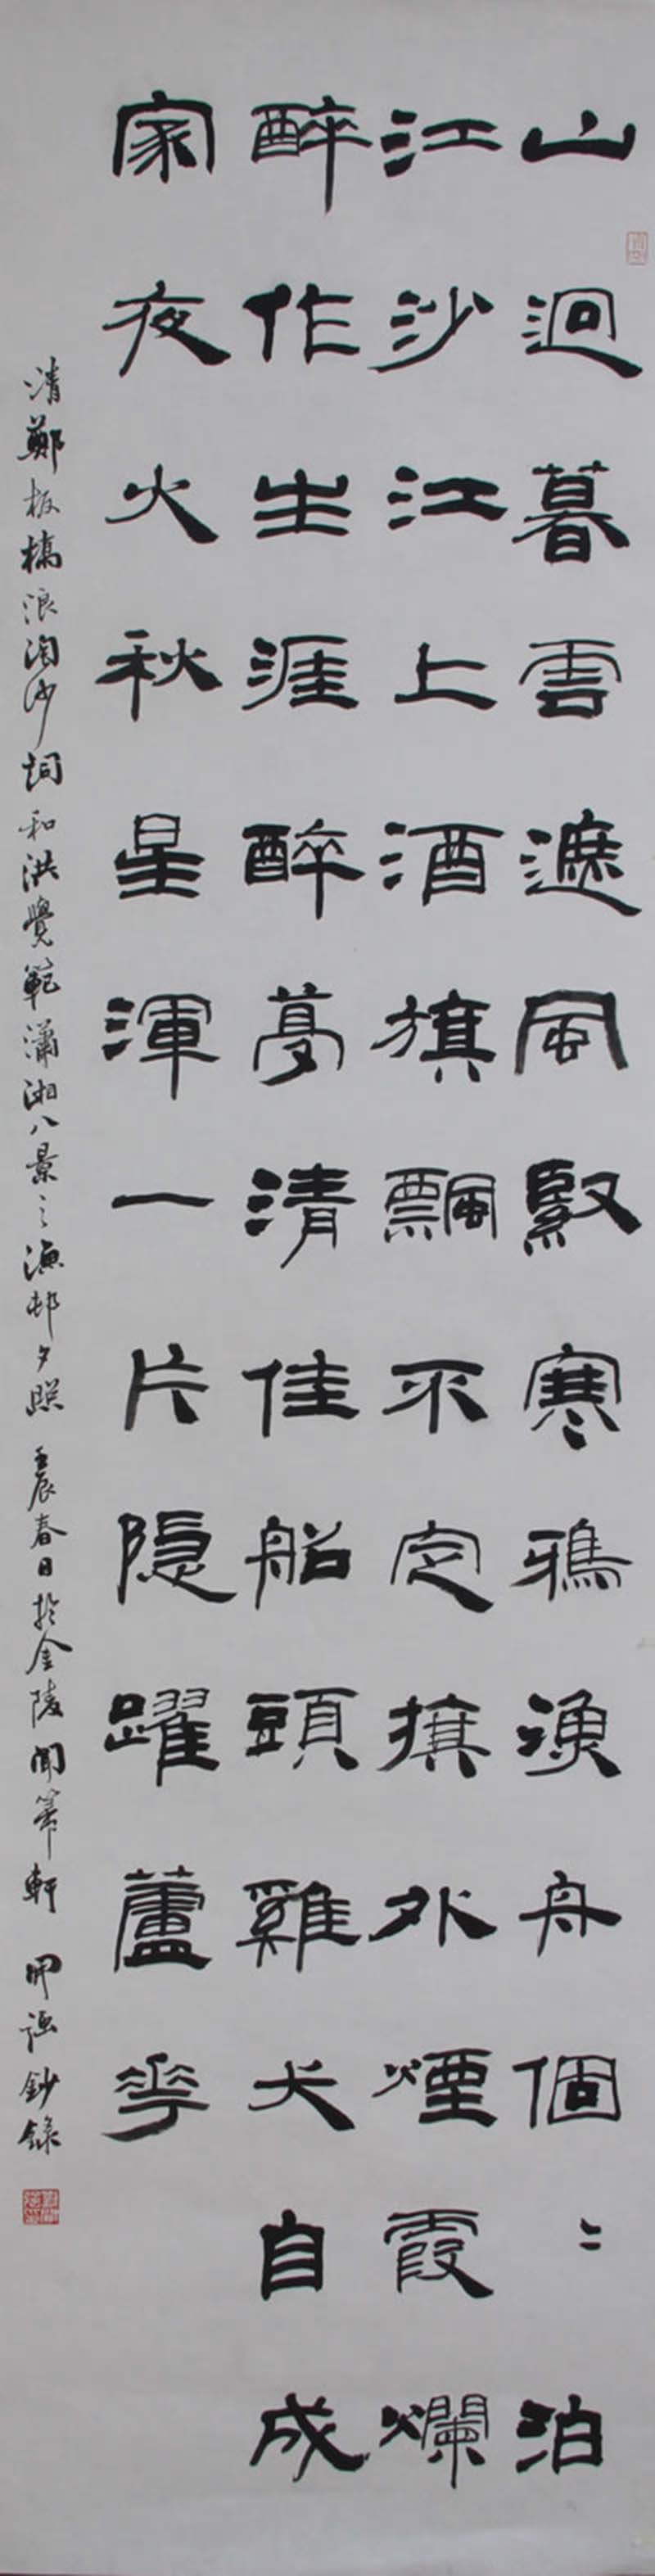 山迥暮雲遮風緊寒鴉漁舟個〻泊
江沙江上酒旗飄不定旗外煙霞爛
醉作生涯醉夢清佳船頭雞犬自成
家夜火秋星渾一片隱躍蘆花
清鄭板橋浪淘沙詞和洪覺範瀟湘八景之漁邨夕照 壬辰春日於金陵聞箏軒 鈔錄